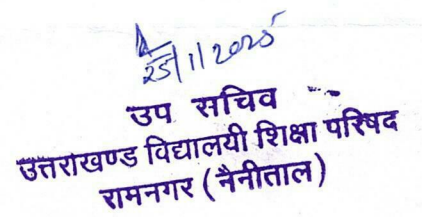 25/1/2025
उप सचिव
उत्तराखण्ड विद्यालयी शिक्षा परिषद
रामनगर (नैनीताल)